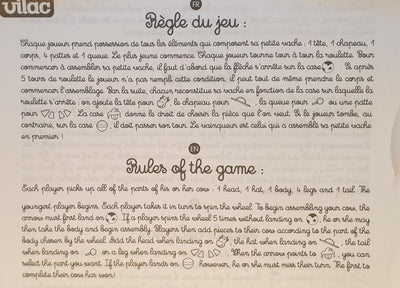 vilac
FR
Règle du jeu :
Chaque joueur prend possession de tous les éléments qui composent sa petite vache : 1 tête, 1 chapeau, 1
corps, 4 pattes et 1 queue. Le plus jeune commence. Chaque joueur tourne tour à tour la roulette. Pour
commencer à assembler sa petite vache, il faut d'abord que la flèche s'arrête sur la case . Si après
5 tours de roulette le joueur n'a pas rempli cette condition, il peut tout de même prendre le corps et
commencer l'assemblage. Par la suite, chacun reconstitue sa vache en fonction de la case sur laquelle la
roulette s'arrête : on ajoute la tête pour , le chapeau pour , la queue pour ou une patte
pour . La case donne le droit de choisir la pièce que l'on veut. Si le joueur tombe, au
contraire, sur la case , il doit passer son tour. Le vainqueur est celui qui a assemblé sa petite vache
en premier !
EN
Rules of the game :
Each player picks up all of the parts of his or her cow : 1 head, 1 hat, 1 body, 4 legs and 1 tail. The
youngest player begins. Each player takes it in turn to spin the wheel. To begin assembling your cow, the
arrow must first land on . If a player spins the wheel 5 times without landing on , he or she may
then take the body and begin assembly. Players then add pieces to their cow according to the part of the
body chosen by the wheel. Add the head when landing on , the hat when landing on , the tail
when landing on or a leg when landing on . When the arrow points to , you can
select the part you want. If the player lands on however, he or she must miss their turn. The first to
complete their cow has won!